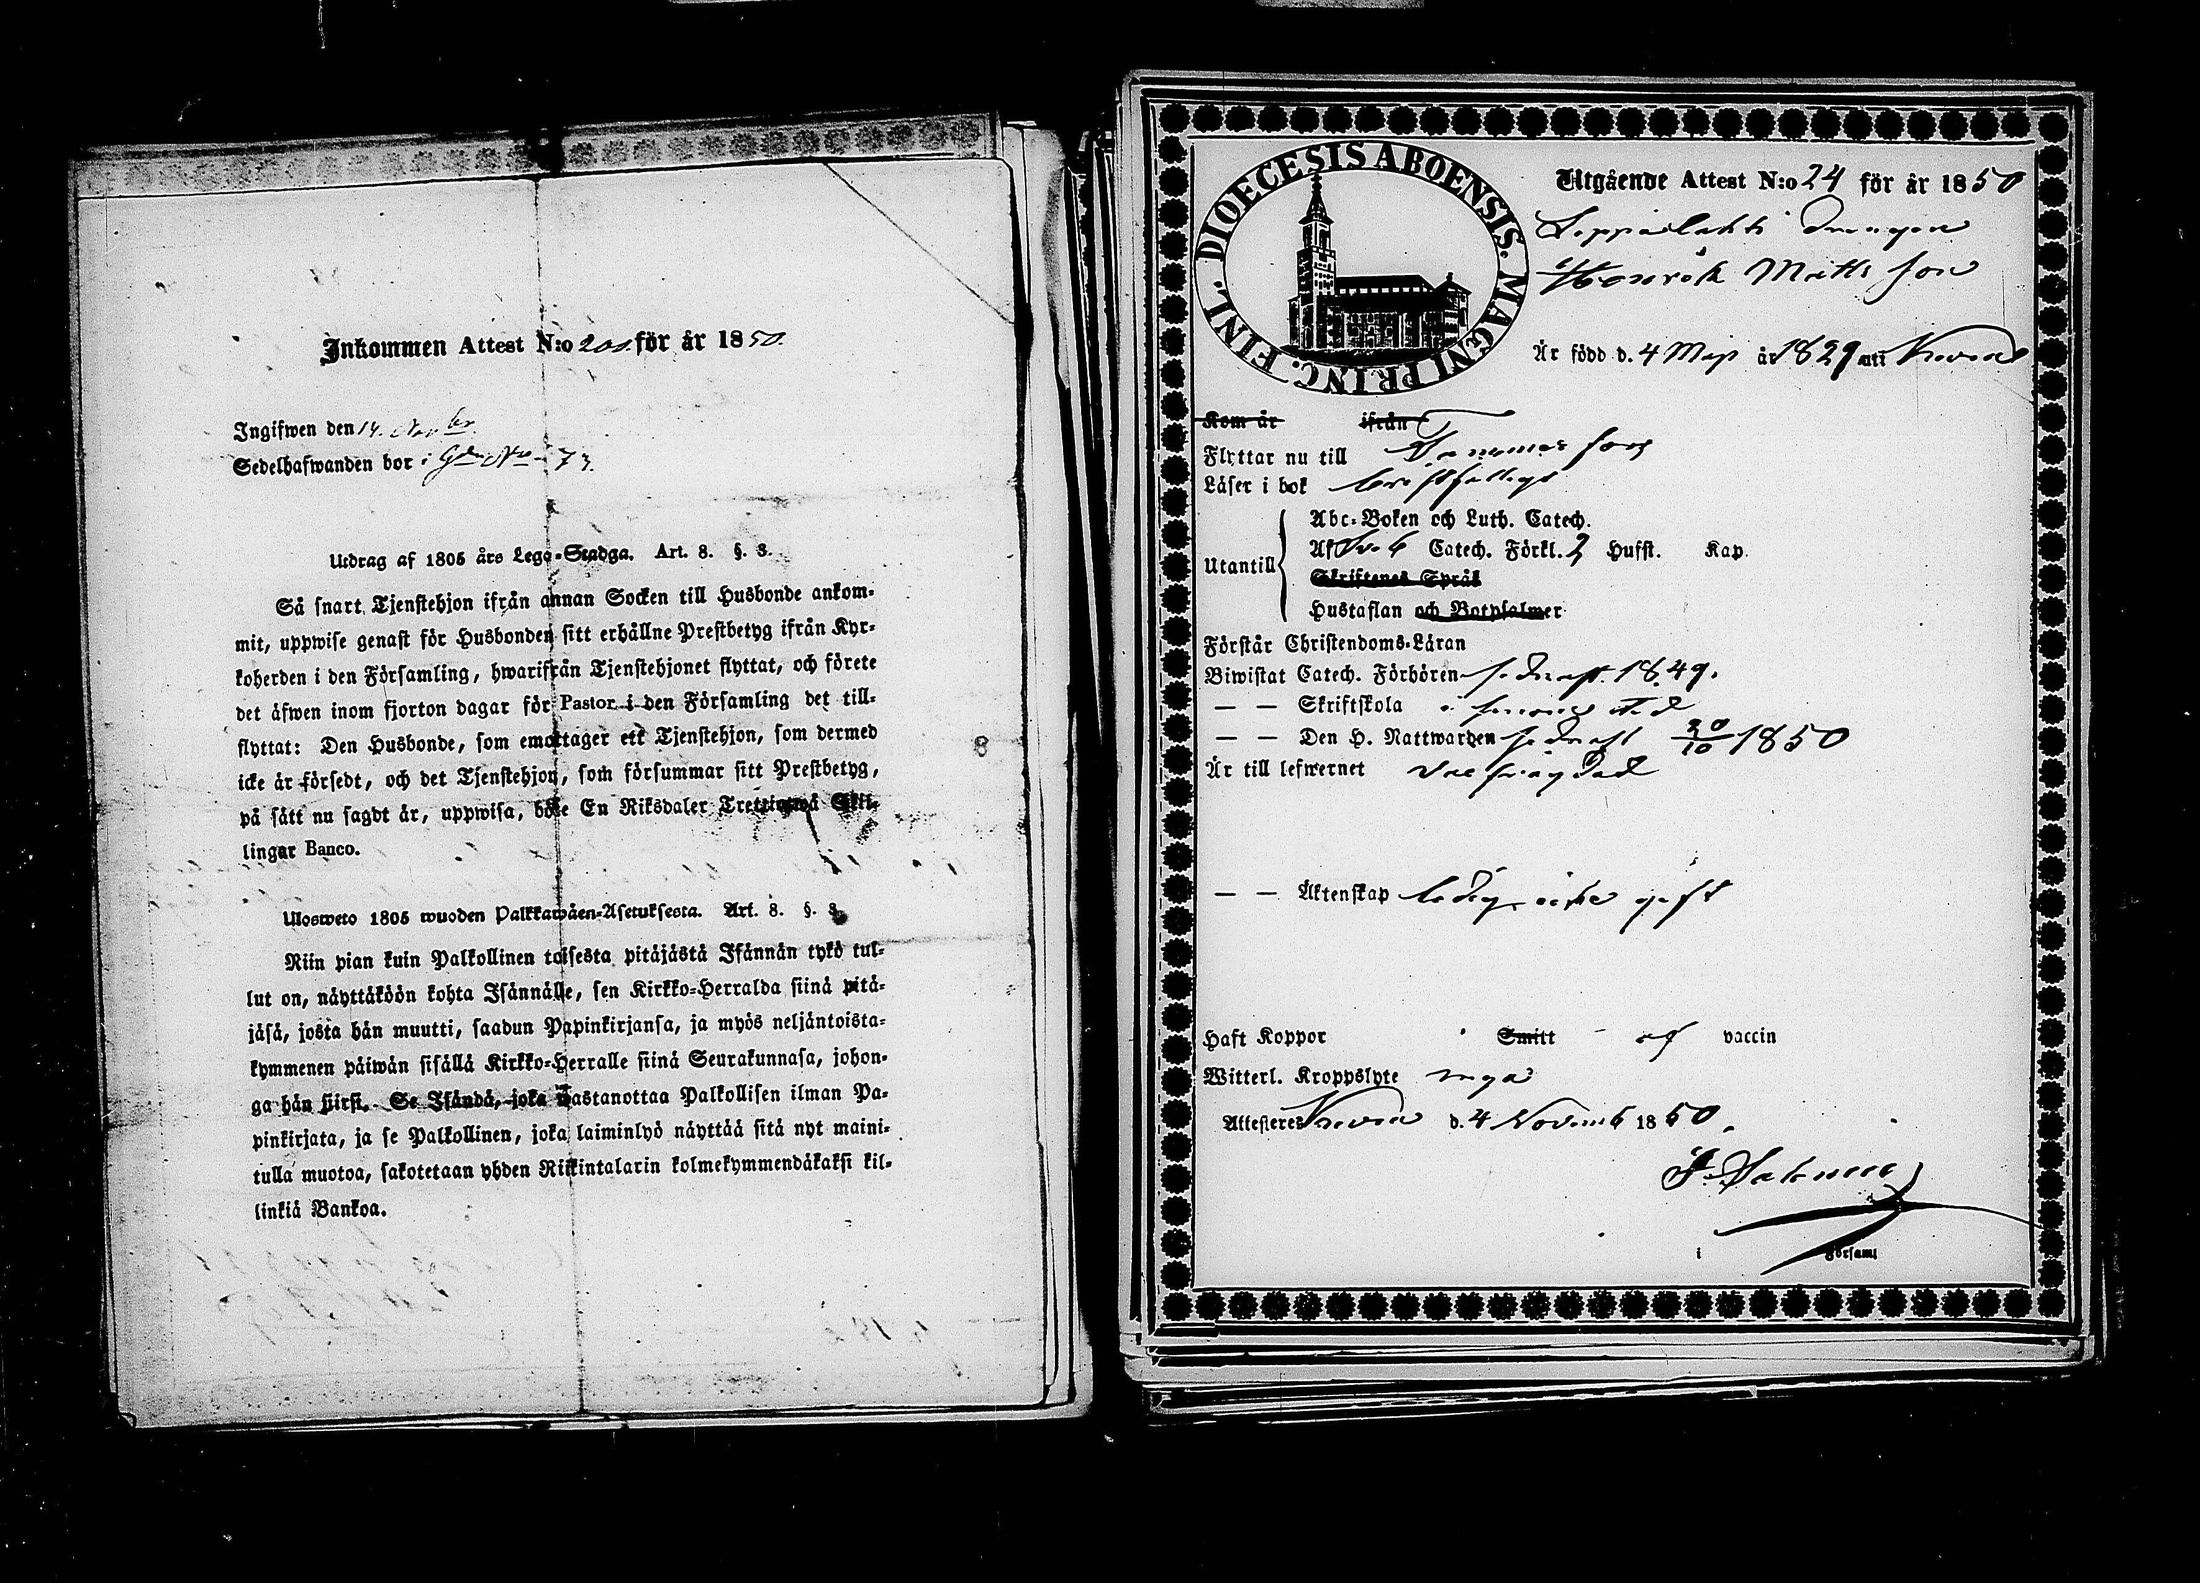 Inkommen Attest N:o 200. för år 1850.
Ingifwen den 14. Novbr
Sedelhafwanden bor i Gdn No 73.
Utdrag af 1805 års Lego-Stadga. Art. 8. §. 3.
Så snart Tjenstehjon ifrån annan Socken till Husbonde ankom-
mit, uppwise genast för Husbonden sitt erhållne Prestbetyg ifrån Kyr-
koherden i den Församling, hwarifrån Tjenstehjonet flyttat, och förete
det äfwen inom fjorton dagar för Pastor i den Församling det till-
flyttat: Den Husbonde, som emottager ett Tjenstehjon, som dermed
icke är försedt, och det Tjenstehjon, som försummar sitt Prestbetyg,
på sätt nu sagdt är, uppwisa, böte En Riksdaler Trettiotwå Skil-
lingar Banco.
Ulosweto 1805 wuoden Palkkawäen-Asetuksesta. Art. 8. §. 3.
Niin pian kuin Palkollinen toisesta pitäjästä Isännän tykö tul-
lut on, näyttäköön kohta Isännälle, sen Kirkko-Herralda siinä pitä-
jäsä, josta hän muutti, saadun Papinkirjansa, ja myös neljäntoista-
kymmenen päiwän sisällä Kirkko-Herralle siinä Seurakunnasa, johon-
ga hän siirsi. Se Isändä, joka wastanottaa Palkollisen ilman Pa-
pinkirjata, ja se Palkollinen, joka laiminlyö näyttää sitä nyt maini-
tulla muotoa, sakotetaan yhden Riikintalarin kolmekymmendäkaksi kil-
linkiä Bankoa.
8
DIOECESIS ABOENSIS. MAGNI PRINC. FINL.
Utgående Attest N:o 24 för år 1850
Leppälahti Drengen
Henrik Mattsson
Är född d. 4 Maj år 1829 uti
Kom år ifrån
Flyttar nu till Tammerfors
Läser i bok försvarligt
Utantill
Abc-Boken och Luth. Catech.
Af Catech. Förkl. 2 Hufst. Kap.
Skriftenes Språk
Hustaflan och Botpsalmer
Förstår Christendoms-Läran
Biwistat Catech. Förhören sednast 1849.
— — Skriftskola i
— — Den H. Nattwarden sednast 20/10 1850
Är till lefwernet välfrägdad
— — Äktenskap ledig, icke gift
Haft Koppor Smitt af vaccin
Witterl. Kroppslyte inga
Attesteres d. 4 Novemb 1850.
i Församl